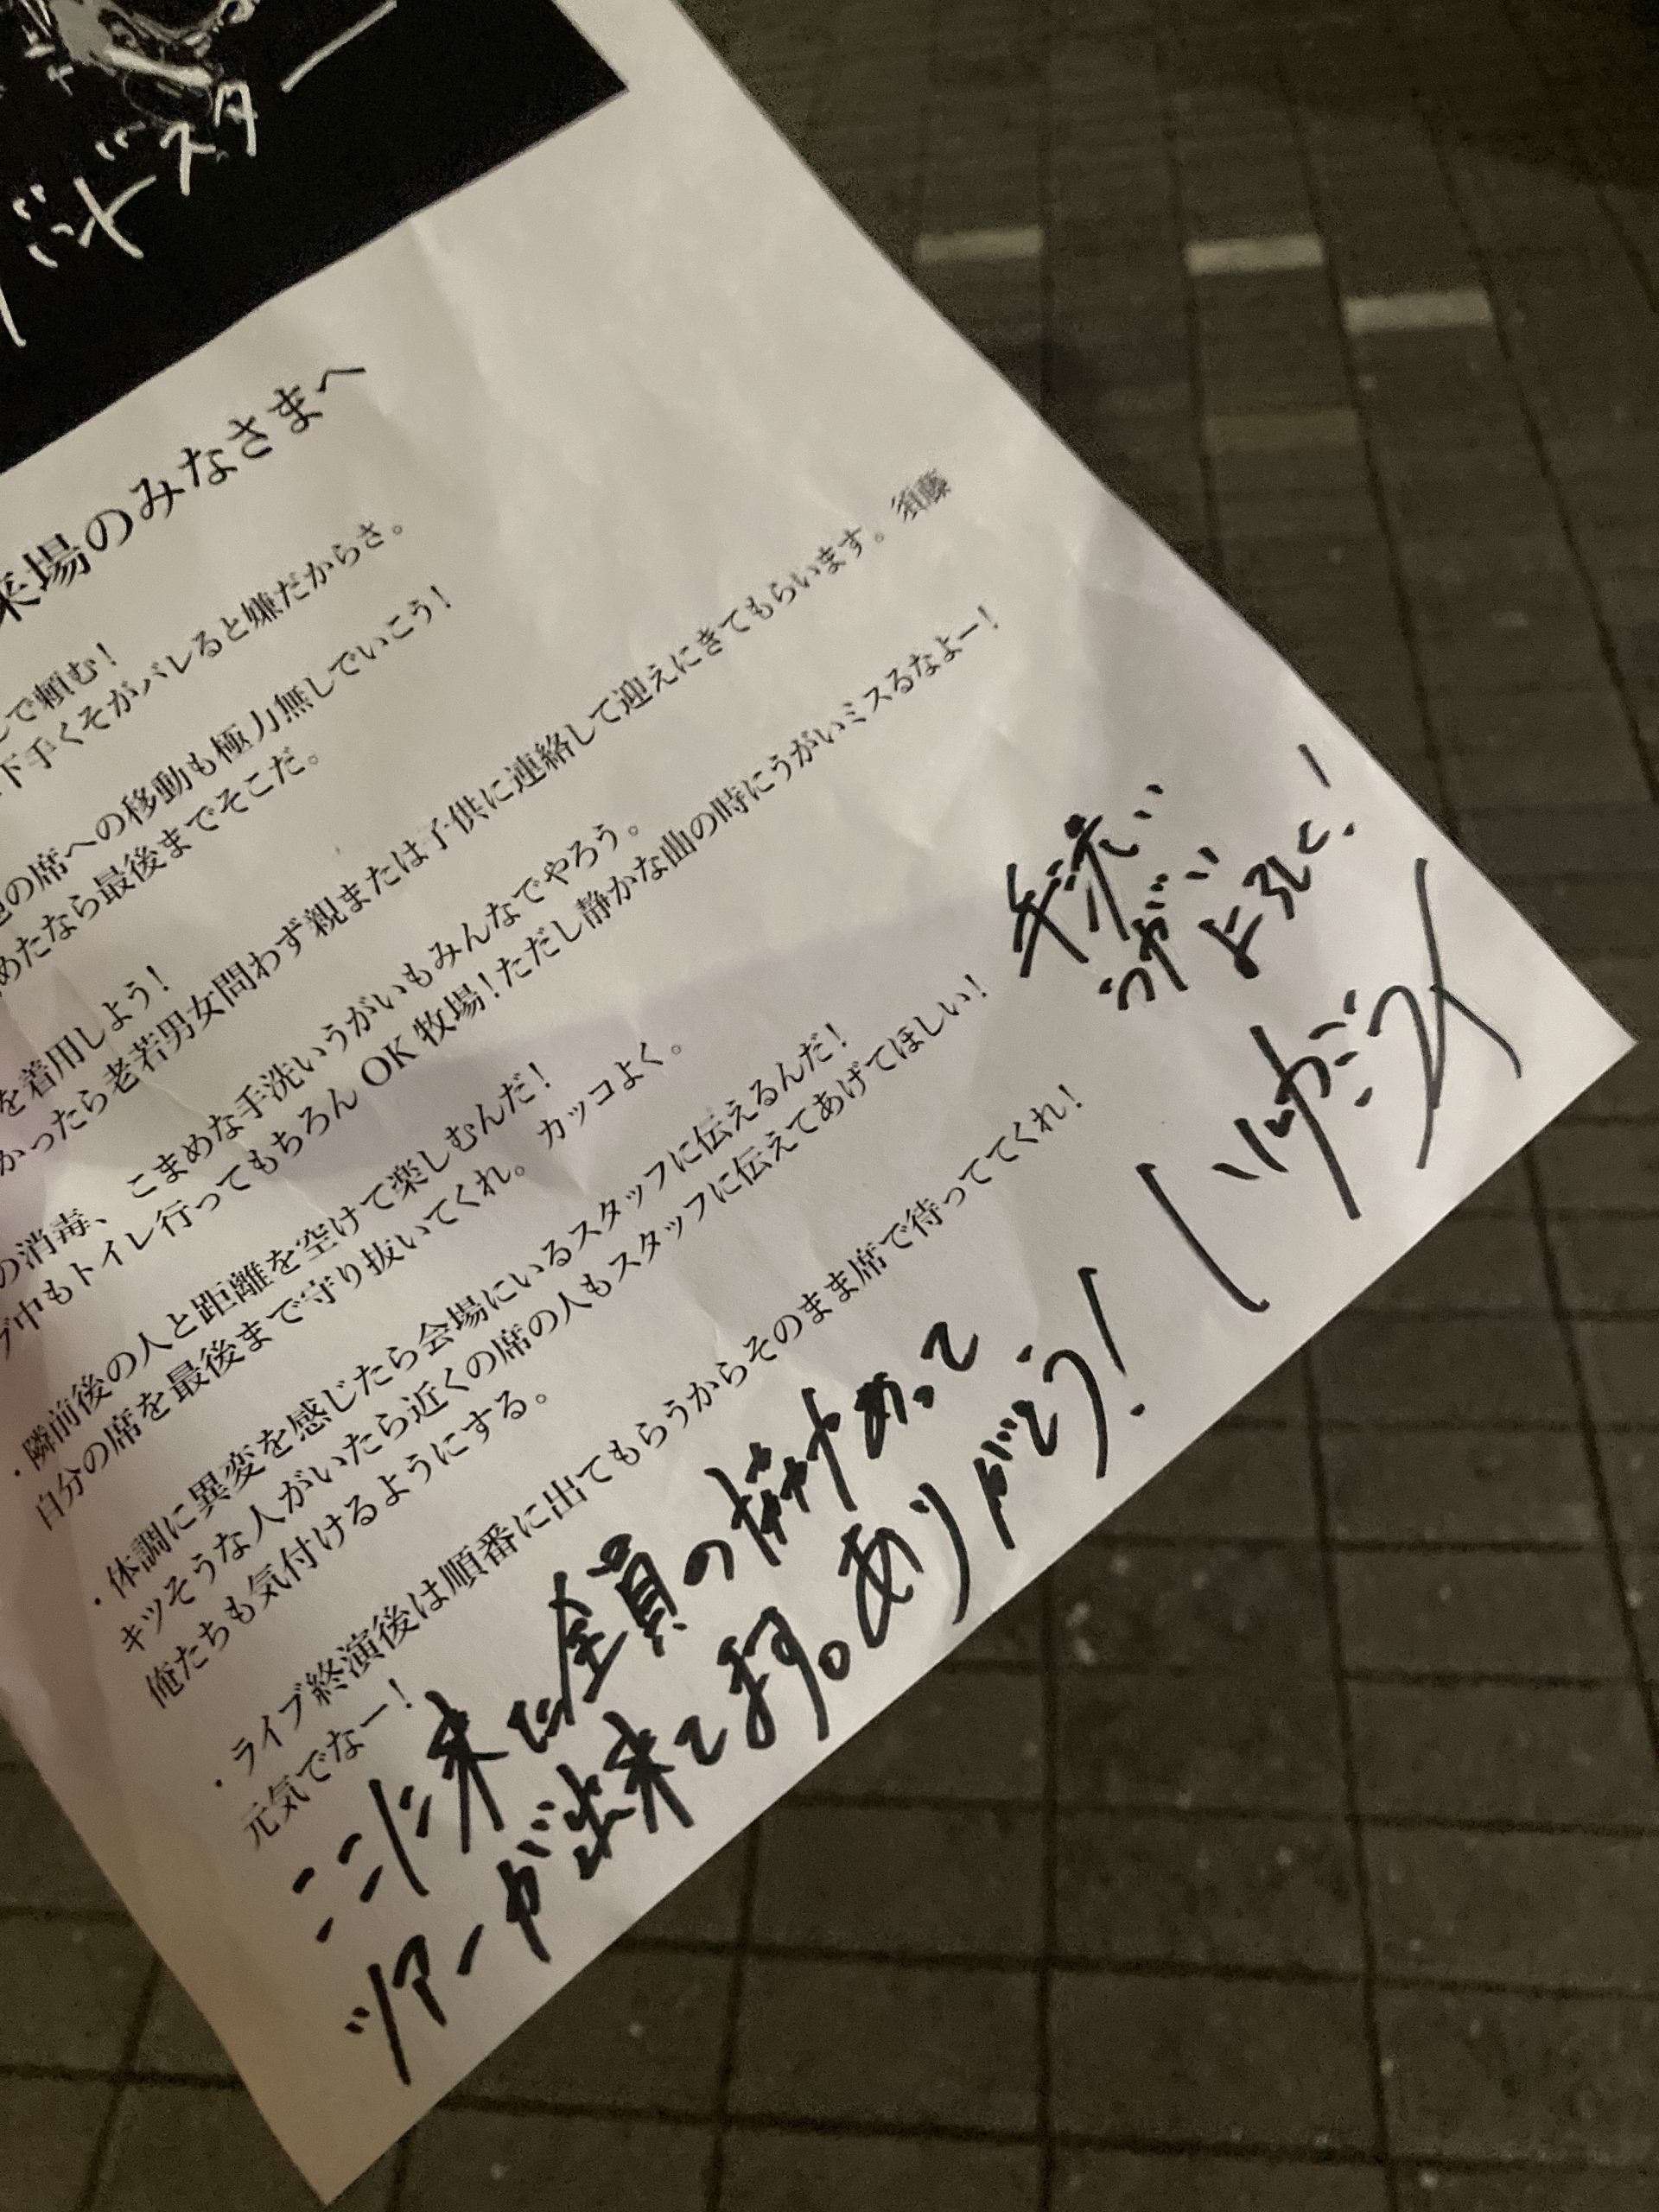 バッドスター
来場のみなさまへ
で頼む！
下手くそがバレると嫌だからさ。
の席への移動も極力無しでいこう！
めたなら最後までそこだ。
を着用しよう！
かったら老若男女問わず親または子供に連絡して迎えにきてもらいます。須藤
の消毒、こまめな手洗いうがいもみんなでやろう。
ブ中もトイレ行ってもちろんOK牧場！ただし静かな曲の時にうがいミスるなよー！
・隣前後の人と距離を空けて楽しむんだ！
自分の席を最後まで守り抜いてくれ。カッコよく。
・体調に異変を感じたら会場にいるスタッフに伝えるんだ！
キツそうな人がいたら近くの席の人もスタッフに伝えてあげてほしい！
俺たちも気付けるようにする。
・ライブ終演後は順番に出てもらうからそのまま席で待っててくれ！
元気でなー！
手洗い
うがい
よろしく！
ここに来た全員の
ツアーが出来てます。ありがとう！